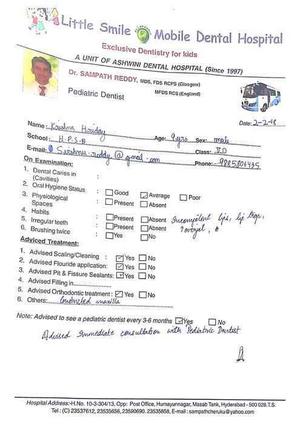 Little Smile Mobile Dental Hospital
Exclusive Dentistry for kids
A UNIT OF ASHWINI DENTAL HOSPITAL (Since 1997)
Dr. SAMPATH REDDY, MDS, FDS RCPS (Glasgow)
MFDS RCS (England)
Pediatric Dentist
Date: 2-2-18
Name: Krishna
Age: 9yrs Sex: male
School: H.P.S-B Class:
E-mail: reddy@gmail.com Phone:
On Examination:
1. Dental Caries in
(Cavities)
2. Oral Hygiene Status : Good Average Poor
3. Physiological : Present Absent
Spaces
4. Habits
5. Irregular teeth : Present Absent Incompetent lips, lip
6. Brushing twice : Yes No
Adviced Treatment:
1. Advised Scaling/Cleaning : Yes No
2. Advised Flouride application: Yes No
3. Advised Pit & Fissure Sealants: Yes No
4. Advised Filling in
5. Advised Orthodontic treatment : Yes No
6. Others:
Note: Advised to see a pediatric dentist every 3-6 months Yes No
Advised immediate consultation with Pediatric Dentist
Hospital Address:-H.No. 10-3-304/13, Opp: Post Office, Humayunnagar, Masab Tank, Hyderabad - 500 028.T.S.
Tel : (C) 23537612, 23535656, 23590690. 23535858, E-mail : sampathcheruku@yahoo.com